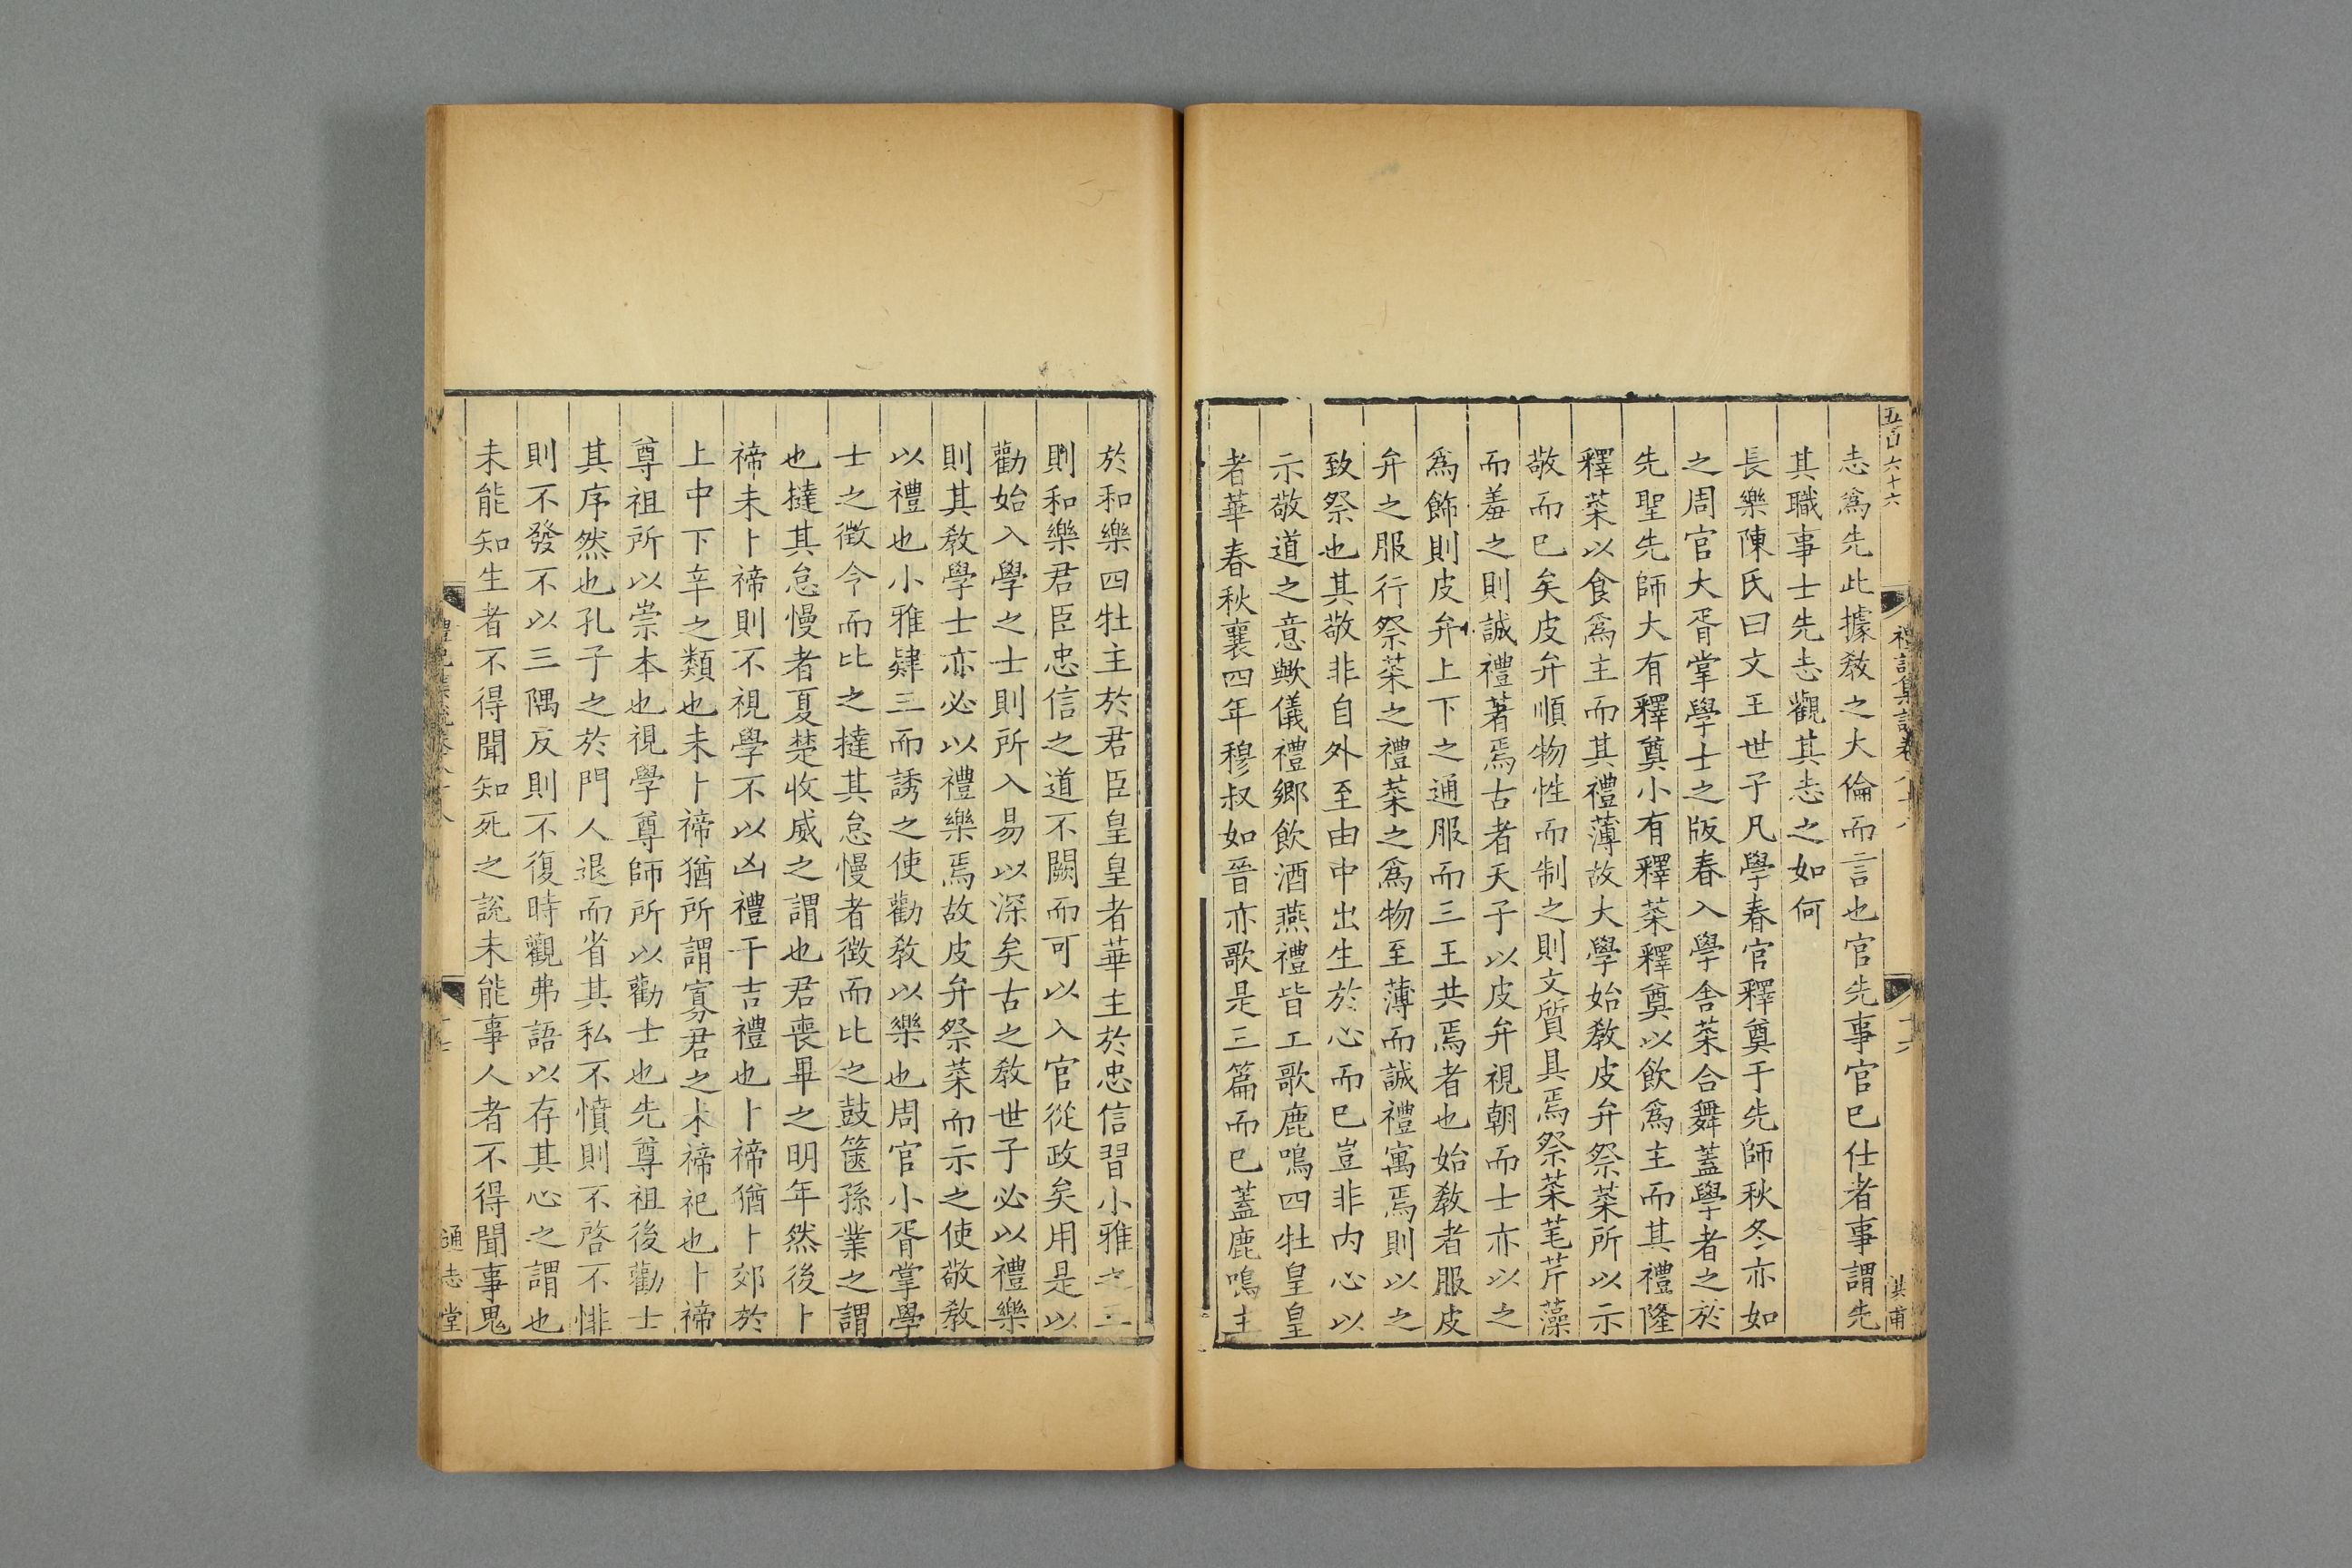 五百六十六
禮記集說卷八十八
十六
其甫
志爲先此據敎之大倫而言也官先事官已仕者事謂先
其職事士先志觀其志之如何
長樂陳氏曰文王世子凡學春官釋奠于先師秋冬亦如
之周官大胥掌學士之版春入學舍菜合舞蓋學者之於
先聖先師大有釋奠小有釋菜釋奠以飮爲主而其禮隆
釋菜以食爲主而其禮薄故大學始敎皮弁祭菜所以示
敬而已矣皮弁順物性而制之則文質具焉祭菜芼芹藻
而羞之則誠禮著焉古者天子以皮弁視朝而士亦以之
爲飾則皮弁上下之通服而三王共焉者也始敎者服皮
弁之服行祭菜之禮菜之爲物至薄而誠禮寓焉則以之
致祭也其敬非自外至由中出生於心而已豈非内心以
示敬道之意歟儀禮鄉飮酒燕禮皆工歌鹿鳴四牡皇皇
者華春秋襄四年穆叔如晉亦歌是三篇而已蓋鹿鳴主
於和樂四牡主於君臣皇皇者華主於忠信習小雅之三
則和樂君臣忠信之道不闕而可以入官從政矣用是以
勸始入學之士則所入易以深矣古之敎世子必以禮樂
則其敎學士亦必以禮樂焉故皮弁祭菜而示之使敬敎
以禮也小雅肄三而誘之使勸敎以樂也周官小胥掌學
士之徵令而比之撻其怠慢者徵而比之鼓篋孫業之謂
也撻其怠慢者夏楚收威之謂也君喪畢之明年然後卜
禘未卜禘則不視學不以凶禮干吉禮也卜禘猶卜郊於
上中下辛之類也未卜禘猶所謂寡君之未禘祀也卜禘
尊祖所以崇本也視學尊師所以勸士也先尊祖後勸士
其序然也孔子之於門人退而省其私不憤則不啓不悱
則不發不以三隅反則不復時觀弗語以存其心之謂也
未能知生者不得聞知死之說未能事人者不得聞事鬼
禮記集說卷八十八
十七
通志堂